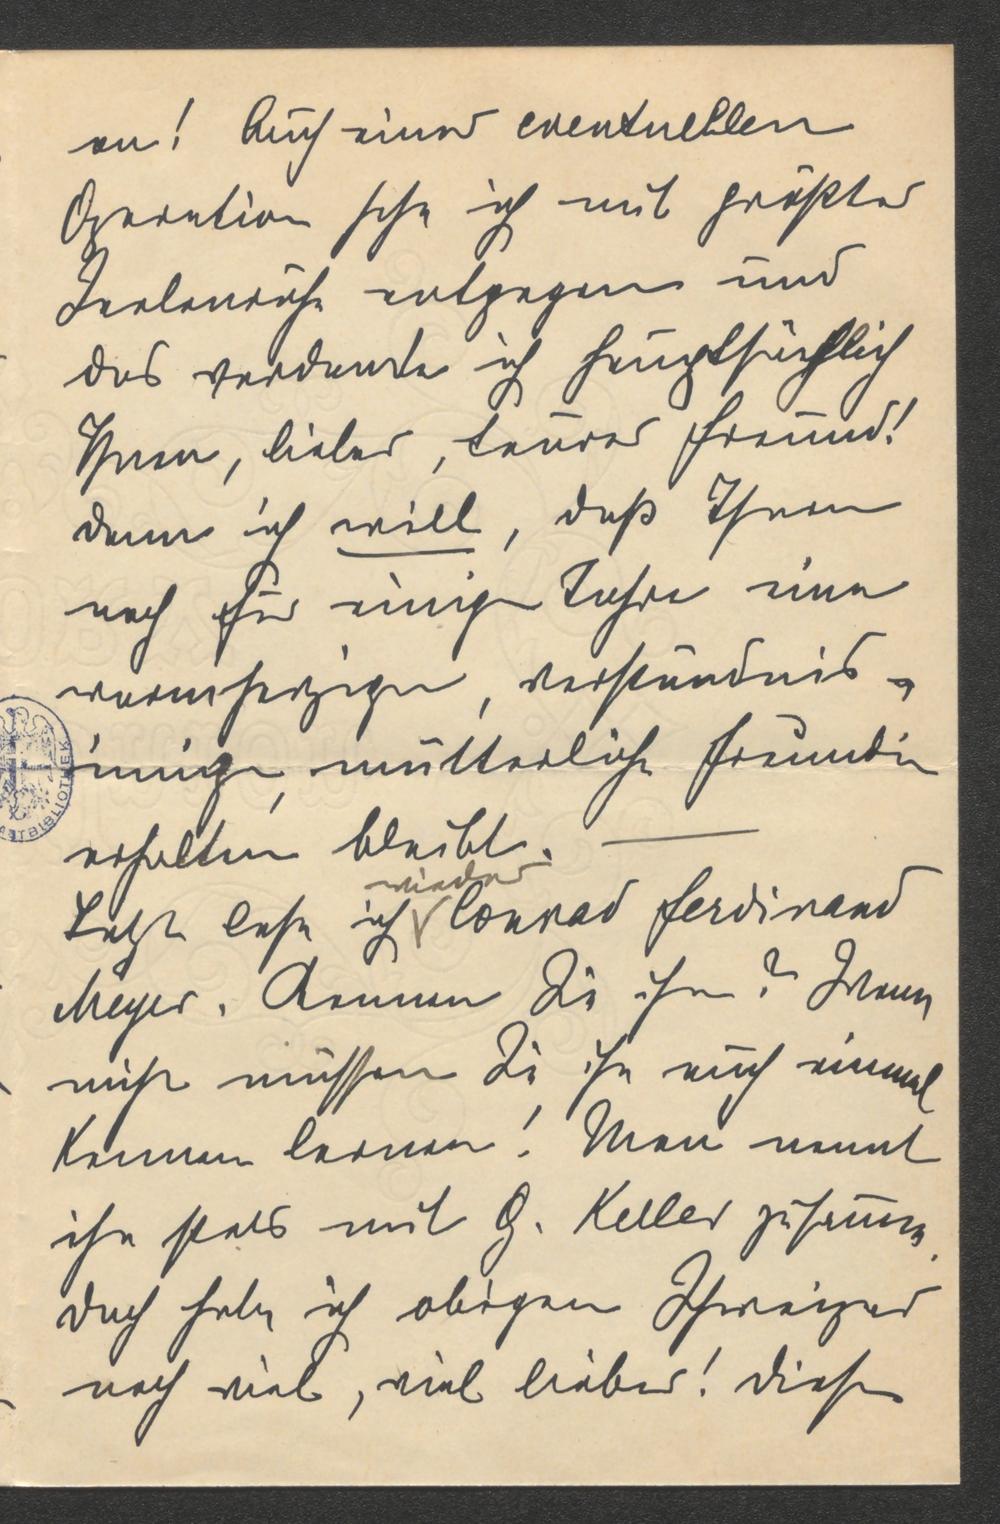 an! Auch einer eventuellen
Operation sehe ich mit größter
Seelenruhe entgegen und
das verdanke ich hauptsächlich
Ihnen, lieber, teurer Freund!
denn ich will, daß Ihnen
noch für einige Jahre eine
warmherzige, verständnis-
innige, mütterliche Freundin
erhalten bleibt. —
wieder
Jetzt lese ich Conrad Ferdinand
Meyer. Kennen Sie ihn? Wenn
nicht müssen Sie ihn auch einmal
kennen lernen! Man nennt
ihn stets mit G. Keller zusammen,
doch habe ich obigen Schweizer
noch viel, viel lieber! Diese
BIBLIOTHEK